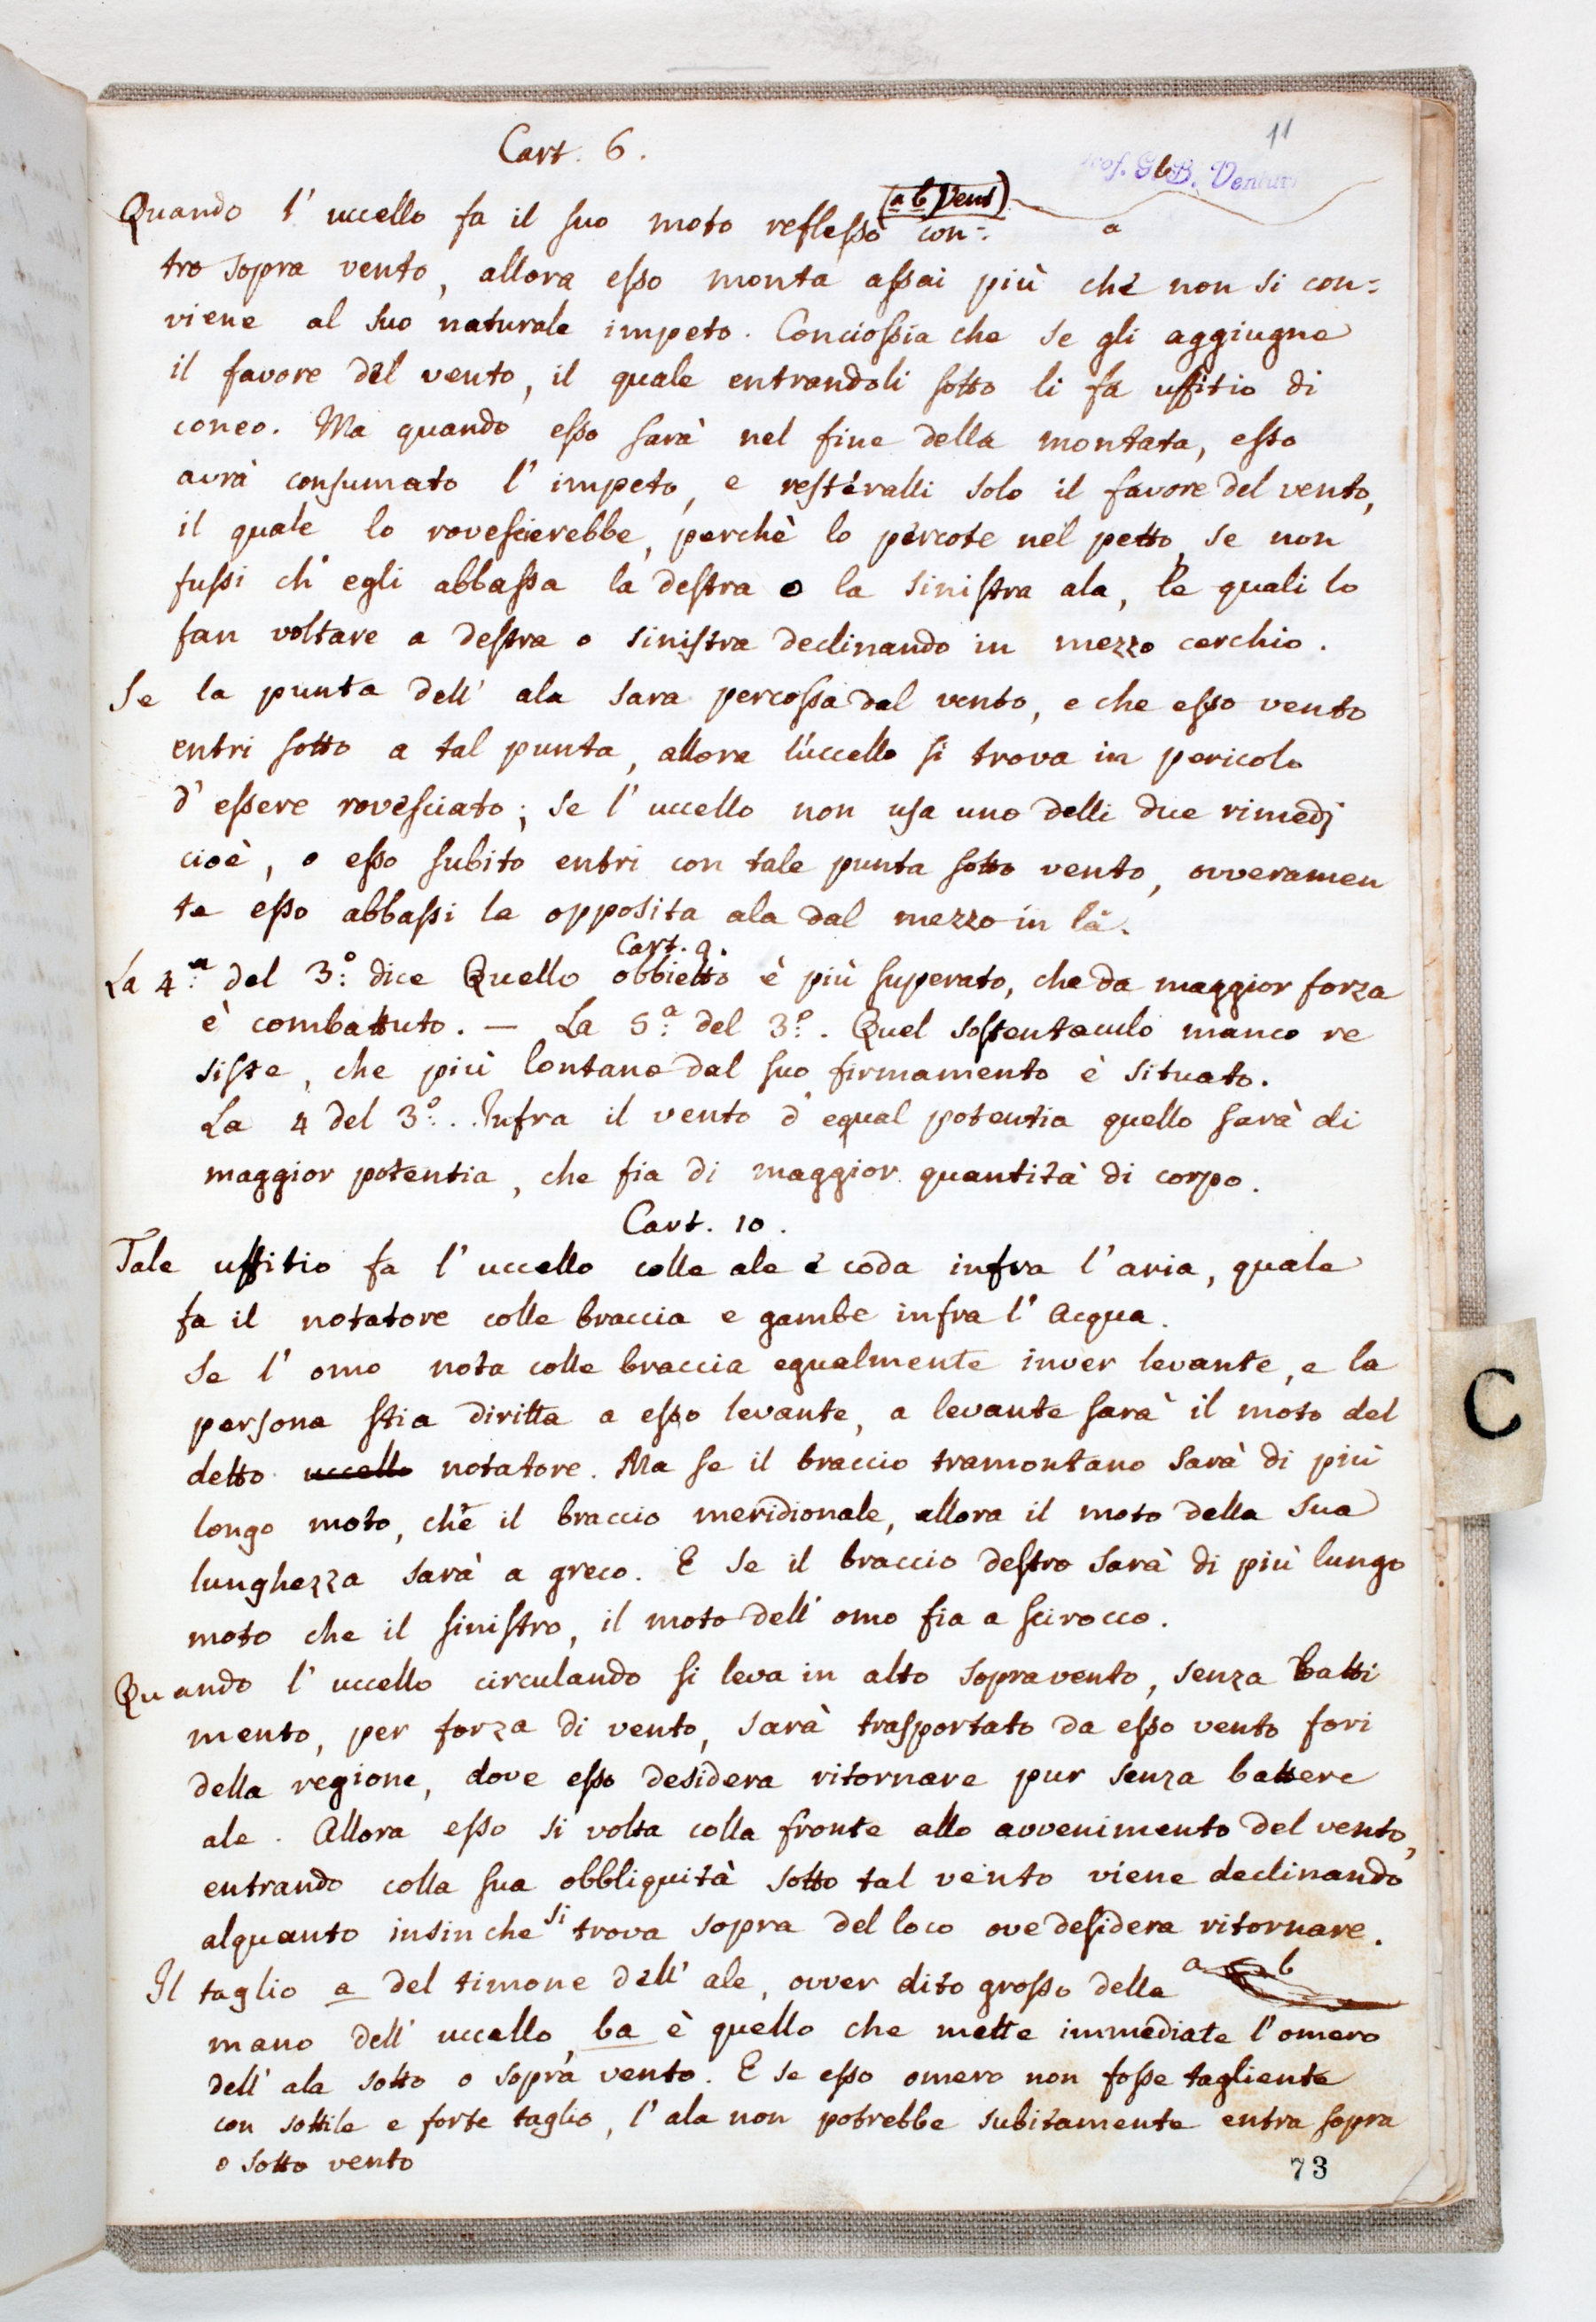 11
Cart. 6.
Prof. G. B. Venturi
b
(a b Vent)
a
Quando l' uccello fa il suo moto reflesso con=
tro sopra vento, allora esso monta assai più che non si con=
viene al suo naturale impeto. Conciossia che se gli aggiugne
il favore del vento, il quale entrandoli sotto li fa uffitio di
coneo. Ma quando esso sarà nel fine della montata, esso
avrà consumato l' impeto, e resteralli solo il favore del vento,
il quale lo rovescierebbe, perchè lo percote nel petto, se non
fussi ch' egli abbassa la destra o la sinistra ala, le quali lo
fan voltare a destra o sinistra declinando in mezzo cerchio.
Se la punta dell' ala sara percossa dal vento, e che esso vento
entri sotto a tal punta, allora l'uccello si trova in pericolo
d' essere rovesciato; se l' uccello non usa uno delli due rimedj
cioè, o esso subito entri con tale punta sotto vento, ovveramen
te esso abbassi la opposita ala dal mezzo in là.
Cart. 9.
La 4.a del 3.o dice Quello obbietto è più superato, che da maggior forza
è combattuto. — La 5.a del 3.o. Quel sostentaculo manco re
siste, che più lontano dal suo firmamento è situato.
La 4 del 3.o. Infra il vento d' equal potentia quello sarà di
maggior potentia, che fia di maggior quantità di corpo.
Cart. 10.
Tale uffitio fa l' uccello colle ale e coda infra l' aria, quale
fa il notatore colle braccia e gambe infra l' acqua.
Se l' omo nota colle braccia egualmente inver levante, e la
persona stia diritta a esso levante, a levante sarà il moto del
detto uccello notatore. Ma se il braccio tramontano sarà di più
longo moto, che il braccio meridionale, allora il moto della sua
lunghezza sarà a greco. E se il braccio destro sarà di più lungo
moto che il sinistro, il moto dell' omo fia a scirocco.
Quando l' uccello circulando si leva in alto sopravento, senza batti
mento, per forza di vento, sarà trasportato da esso vento fori
della regione, dove esso desidera ritornare pur senza battere
ale. Allora esso si volta colla fronte allo avvenimento del vento,
entrando colla sua obbliquità sotto tal vento viene declinando
alquanto insin che si trova sopra del loco ove desidera ritornare.
Il taglio a del timone dell' ale, ovver dito grosso della
a b
mano dell' uccello, ba è quello che mette immediate l' omero
dell' ala sotto o sopra vento. E se esso omero non fosse tagliente
con sottile e forte taglio, l' ala non potrebbe subitamente entra sopra
o sotto vento
73
C